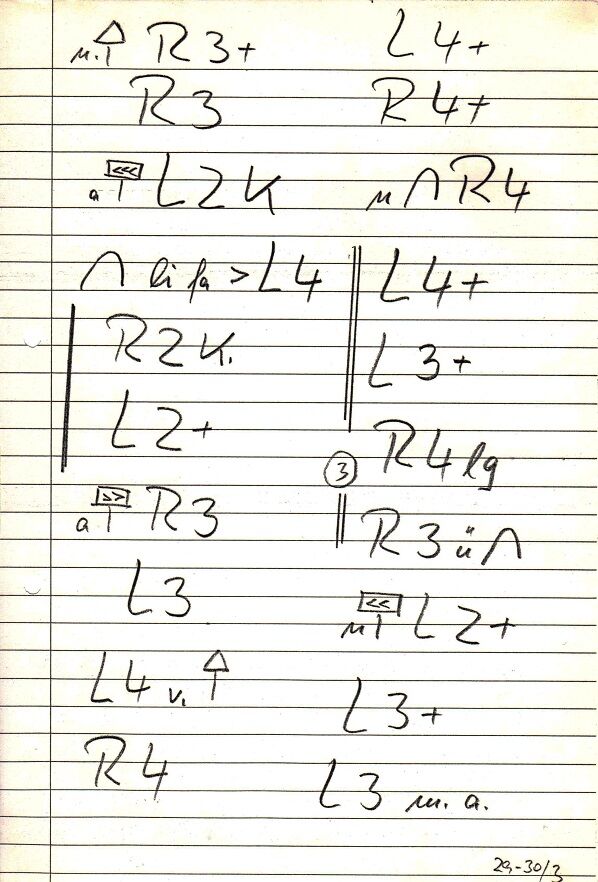 n. R3+
R3
a <<< L2K
∩ li fa > L4
R2K.
L2+
a >> R3
L3
L4 v.
R4
L4+
R4+
n ∩ R4
L4+
L3+
3 R4 lg
R3 ü ∩
n << L2+
L3+
L3 m. a.
29-30/3